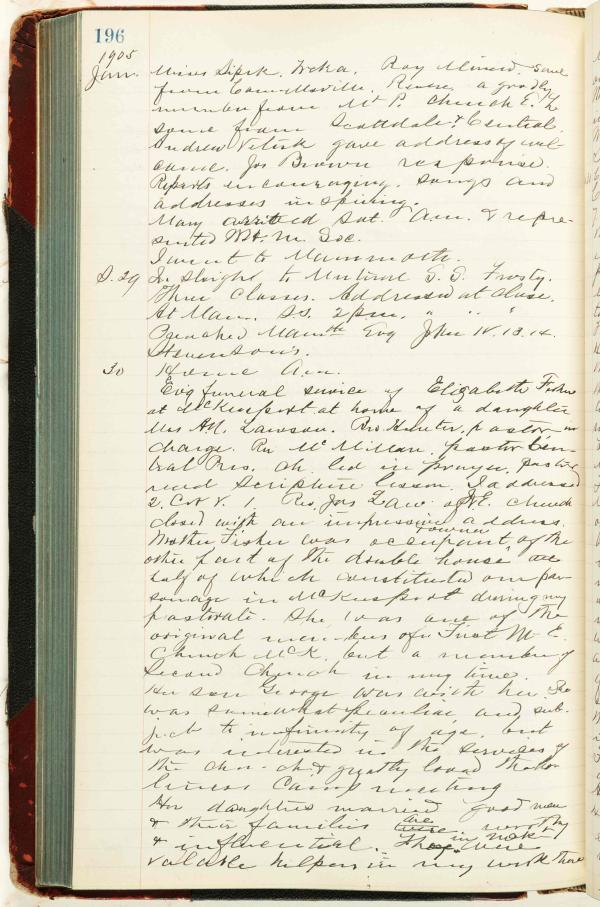 196
1905
Jan. Misses Sipek, Roy Minerd. Some
from Connellsville. Revere, a goodly
number from Mt P. Church E. The
same from Scottdale & Central.
Andrew gave address of wel
come. Jos Brown response.
Reports encouraging. Songs and
addresses inspiring.
Mary arrived Sat. A.m. & repre-
sented W.H.M. Soc.
I went to Mammoth.
S. 29 In sleigh to Mutual S.S. Frosty.
Three Classes. Addressed at close.
At Mam. S.S. 2 p.m. " " "
Preached Mamth Evg John IV. 13.14.
Stevenson's.
30 Home A.m.
Evg funeral service of Elizabeth Fisher
at McKeesport at home of a daughter
Mrs Lawson. Bro Hunter, pastor in
charge. Rev McMillan, pastor Cen-
tral Pres. Ch. led in prayer, pastor
read Scripture lesson. I addressed
2. Cor V. 1. Rev. Jos Law of church
closed with an impressive address.
Mother Fisher was occupant of the
owner
other part of the double house
half of which constituted our par-
sonage in McKeesport during my
pastorate. She was one of the
original members of First M.E.
Church McK. but a member of
Second Church in my time.
Her son George was with her. She
was somewhat peculiar and sub-
ject to infirmity of age, but
was interested in the services of
the church & greatly loved the ho-
liness Camp meeting
Her daughters married good men
& their families are worthy
& influential. in McK-
They were
valuable helpers in my work there